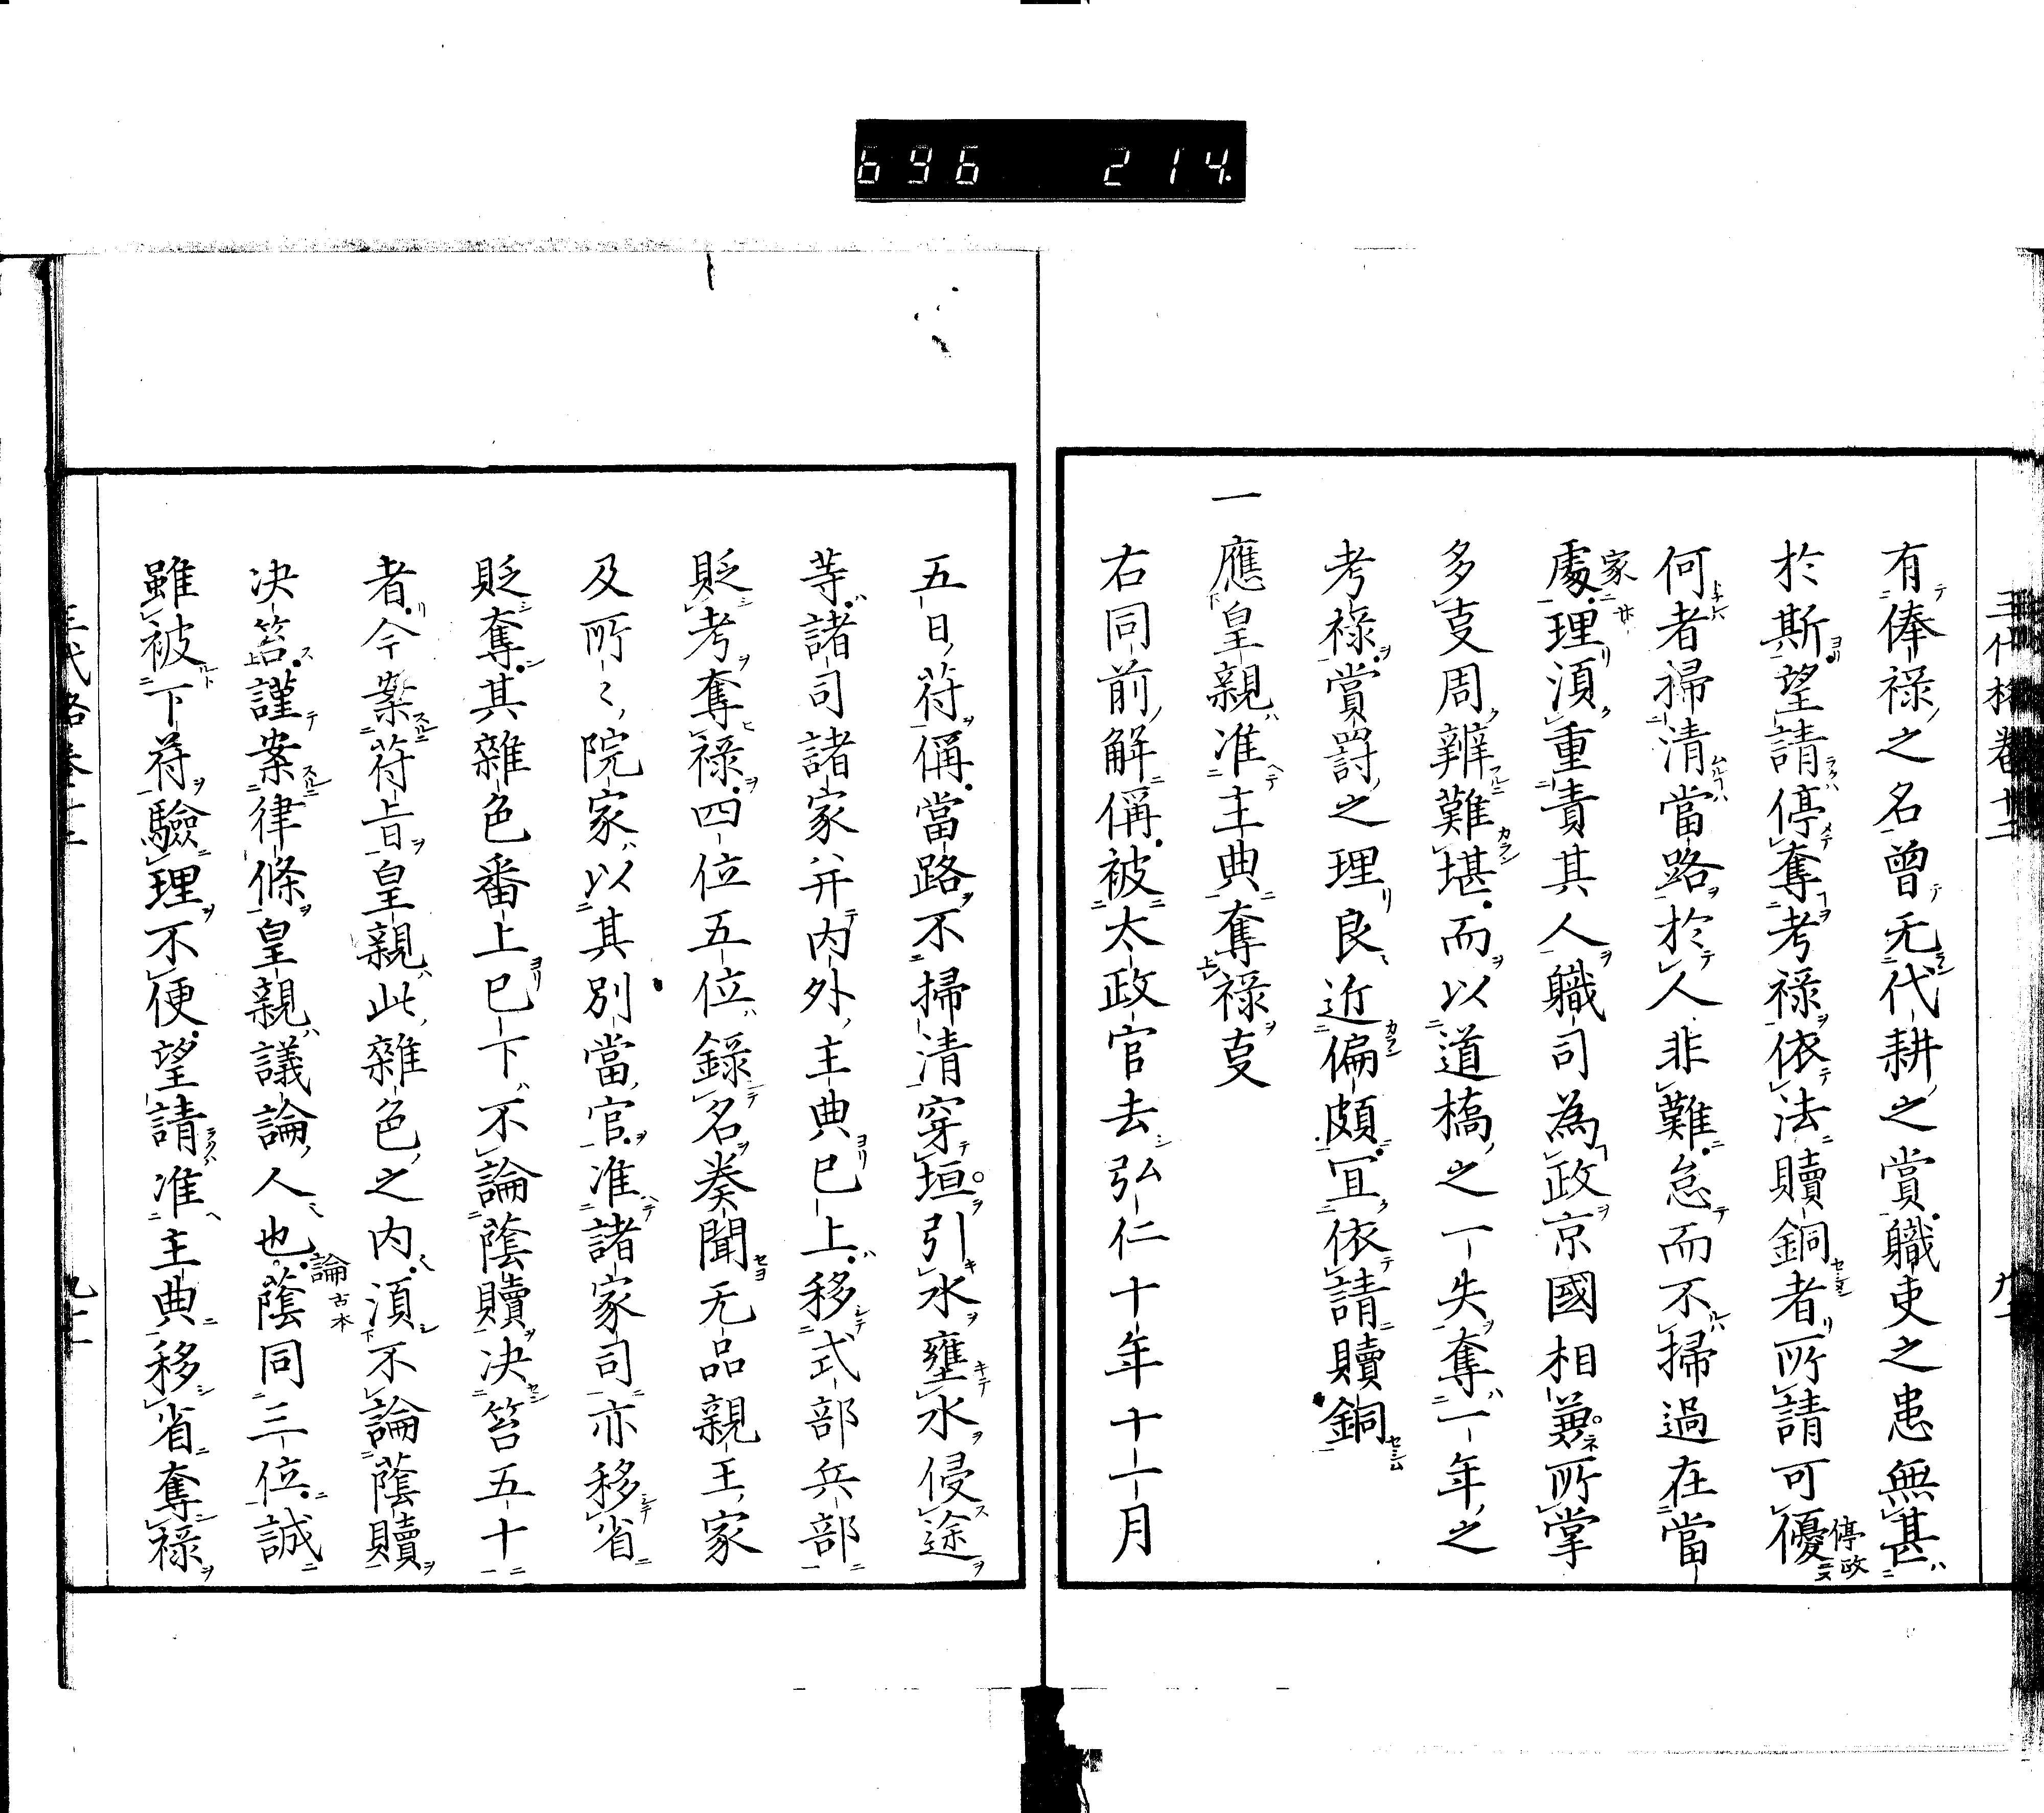 696 214
有俸禄之名曽无代耕之賞職吏之患無甚
於斯望請停奪考禄依法贖銅者所請可優
停政
何者掃清當路於人非難怠而不掃過在當
家
處理湏重責其人職司為政京國相兼所掌
多叓周辨難堪而以道橋之一失奪一年之
考禄賞罸之理良近偏頗冝依請贖銅
一應皇親准主典奪禄叓
右同前解偁被太政官去弘仁十年十一月
五日符偁當路不掃清穿垣引水壅水侵途
等諸司諸家并内外主典已上移式部兵部
貶考奪禄四位五位録名奏聞无品親王家
及所々院家以其別當官准諸家司亦移省
貶奪其雜色番上已下不論蔭贖决笞五十
者今案符旨皇親此雜色之内湏不論蔭贖
决笞謹案律條皇親議論人也蔭同三位誠
論古本
雖被下符驗理不便望請准主典移省奪禄